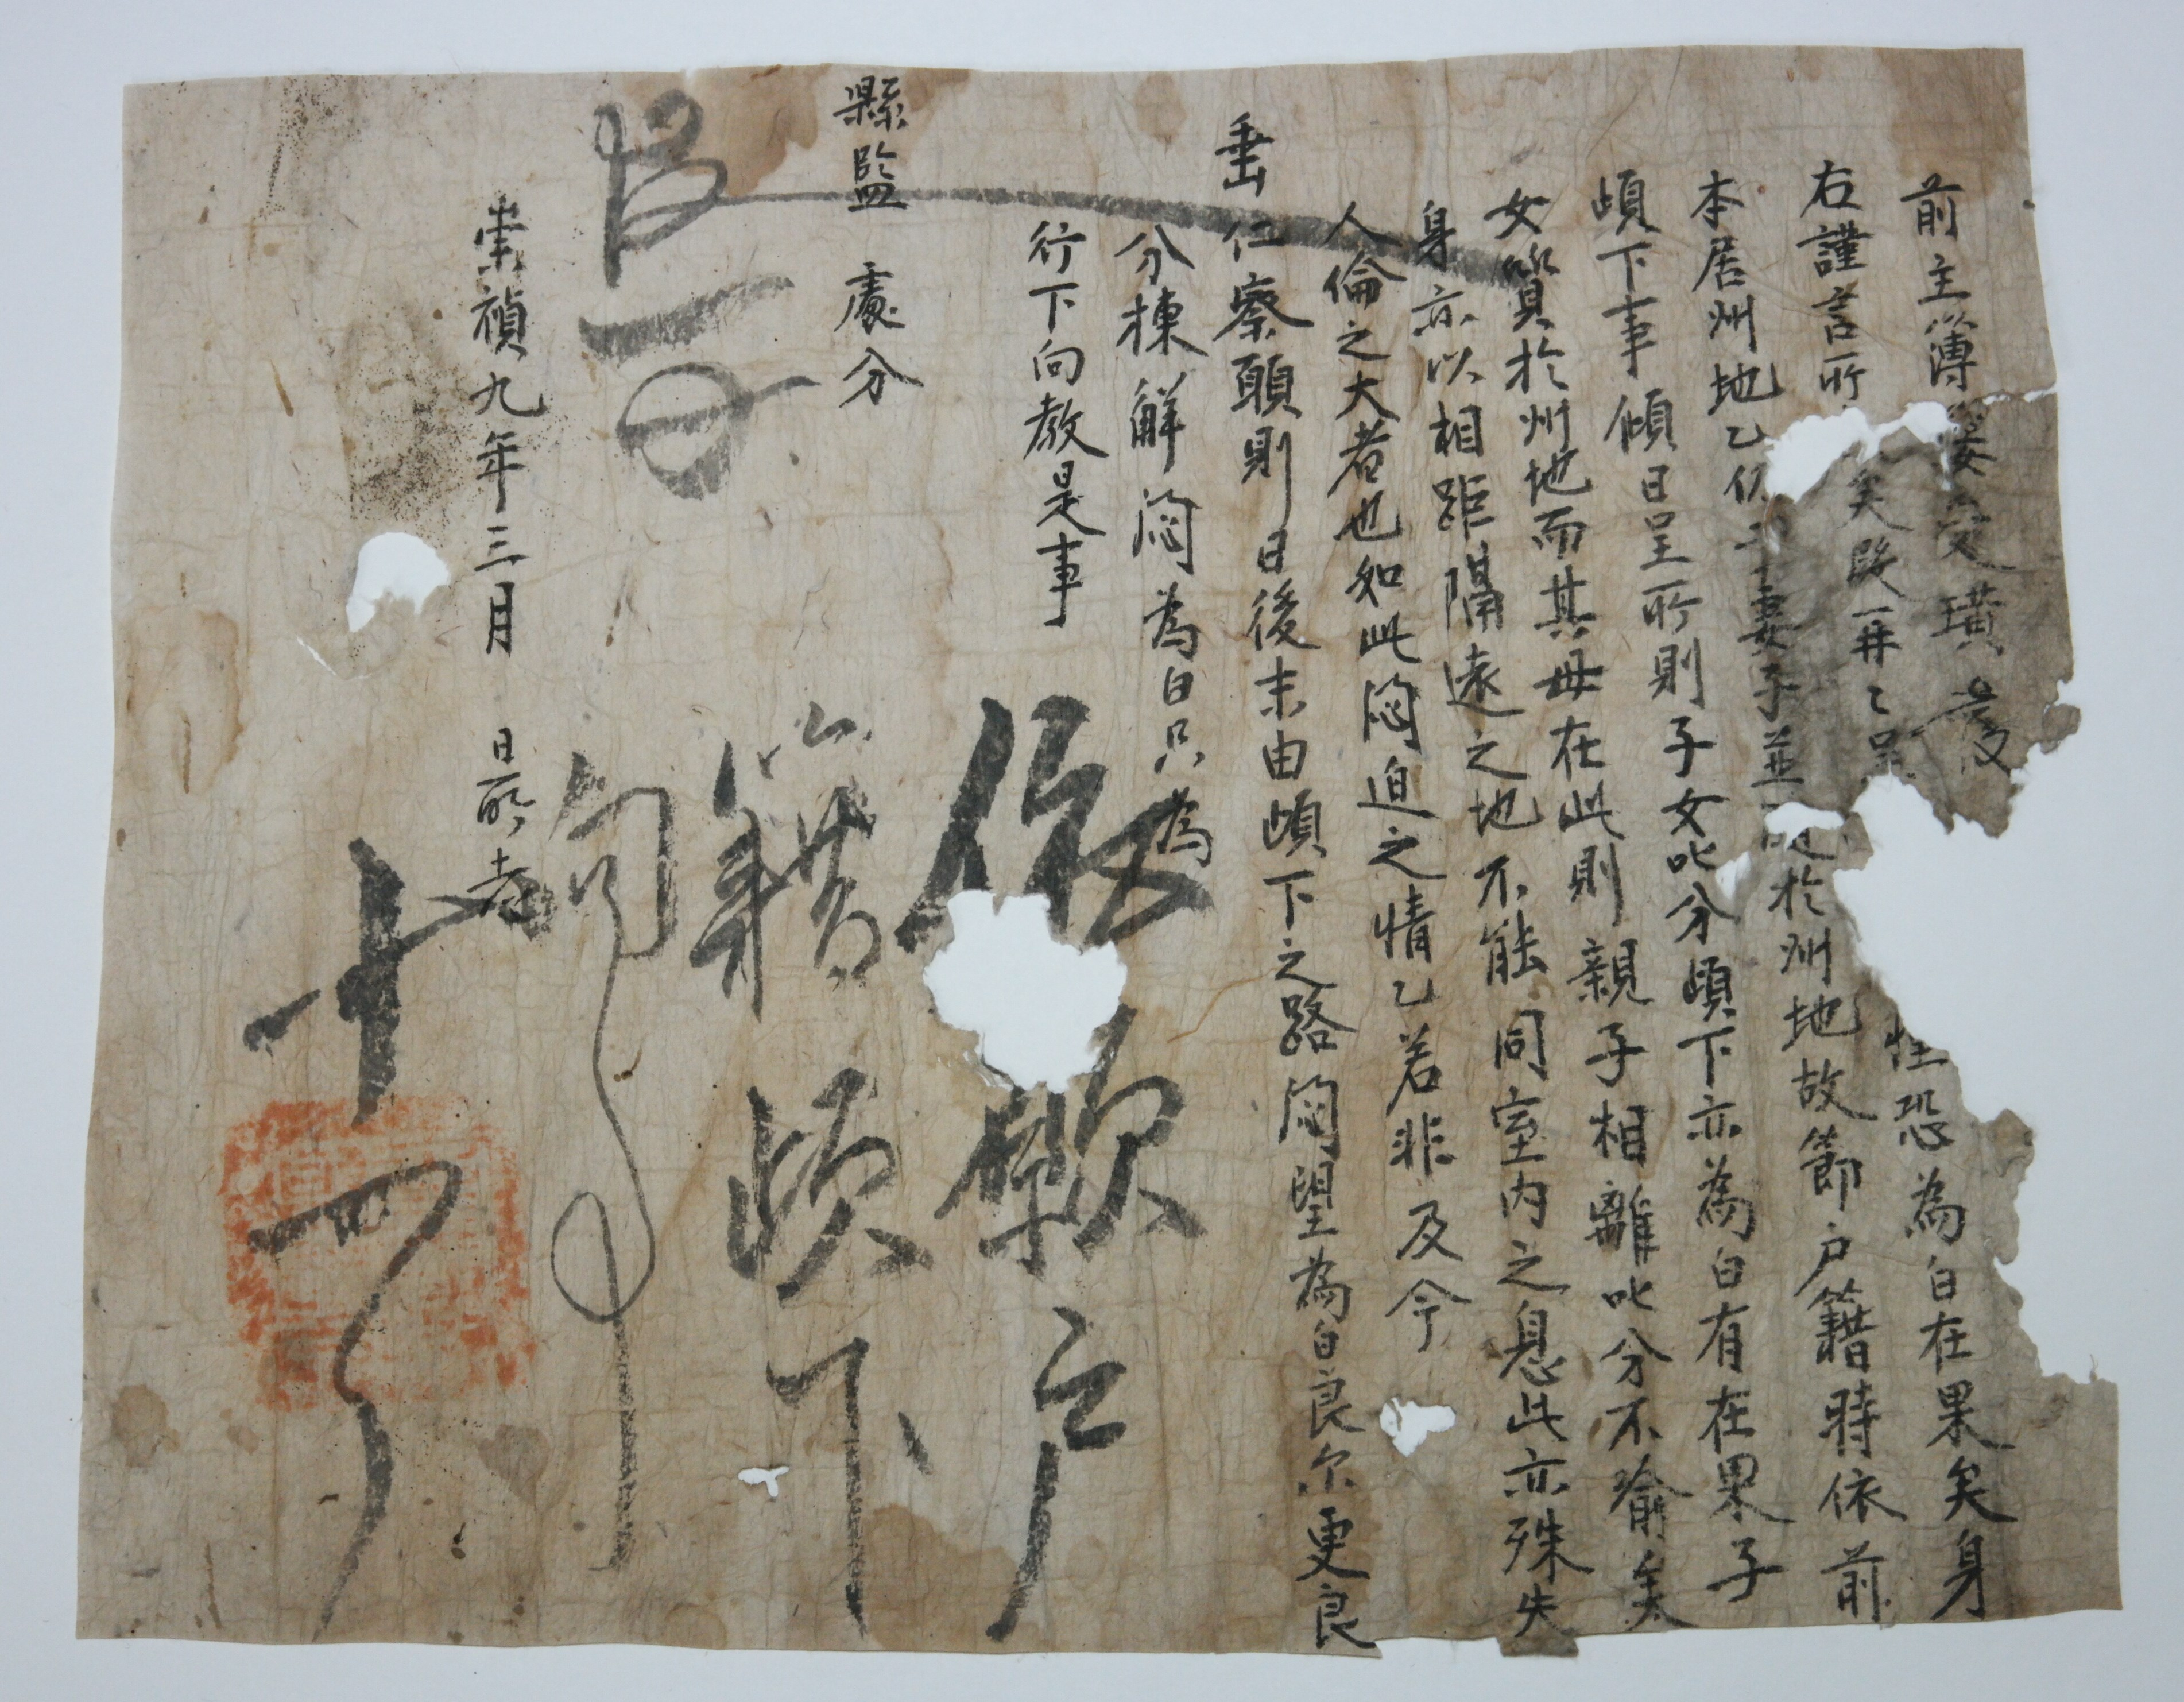 前主簿 璜
右謹言所 矣段再乙 恐為白在果矣身
本居州地乙 妻子並 於州地故節戶籍時依前
頉下事傾日呈所則子女叱分頉下亦為白有在果子
女贅於州地而其母在此則親子相離叱分不喻矣
身亦以相距隔遠之地不能同室內之息此亦殊失
人倫之大者也如此悶迫之情乙若非及今
垂仁察願則日後末由頉下之路悶望為白良尔更良
分揀解悶為白只為
行下向教是事
縣監 處分
崇禎九年三月 日所志
依 戶
籍頉下
十